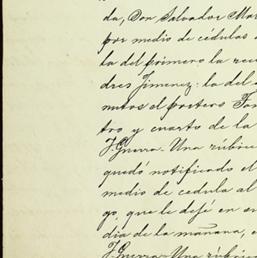 da, Don Salvador Mar
por medio de cédulas
la del primero la rec
dres Jimenez: la del
nutos el portero Tor
tro y cuarto de la
J. Guerra. Una rúbric
quedó notificado el
medio de cedula al
go, que le dejé en su
día de la mañana, e
J. Guerra. Una rúbric